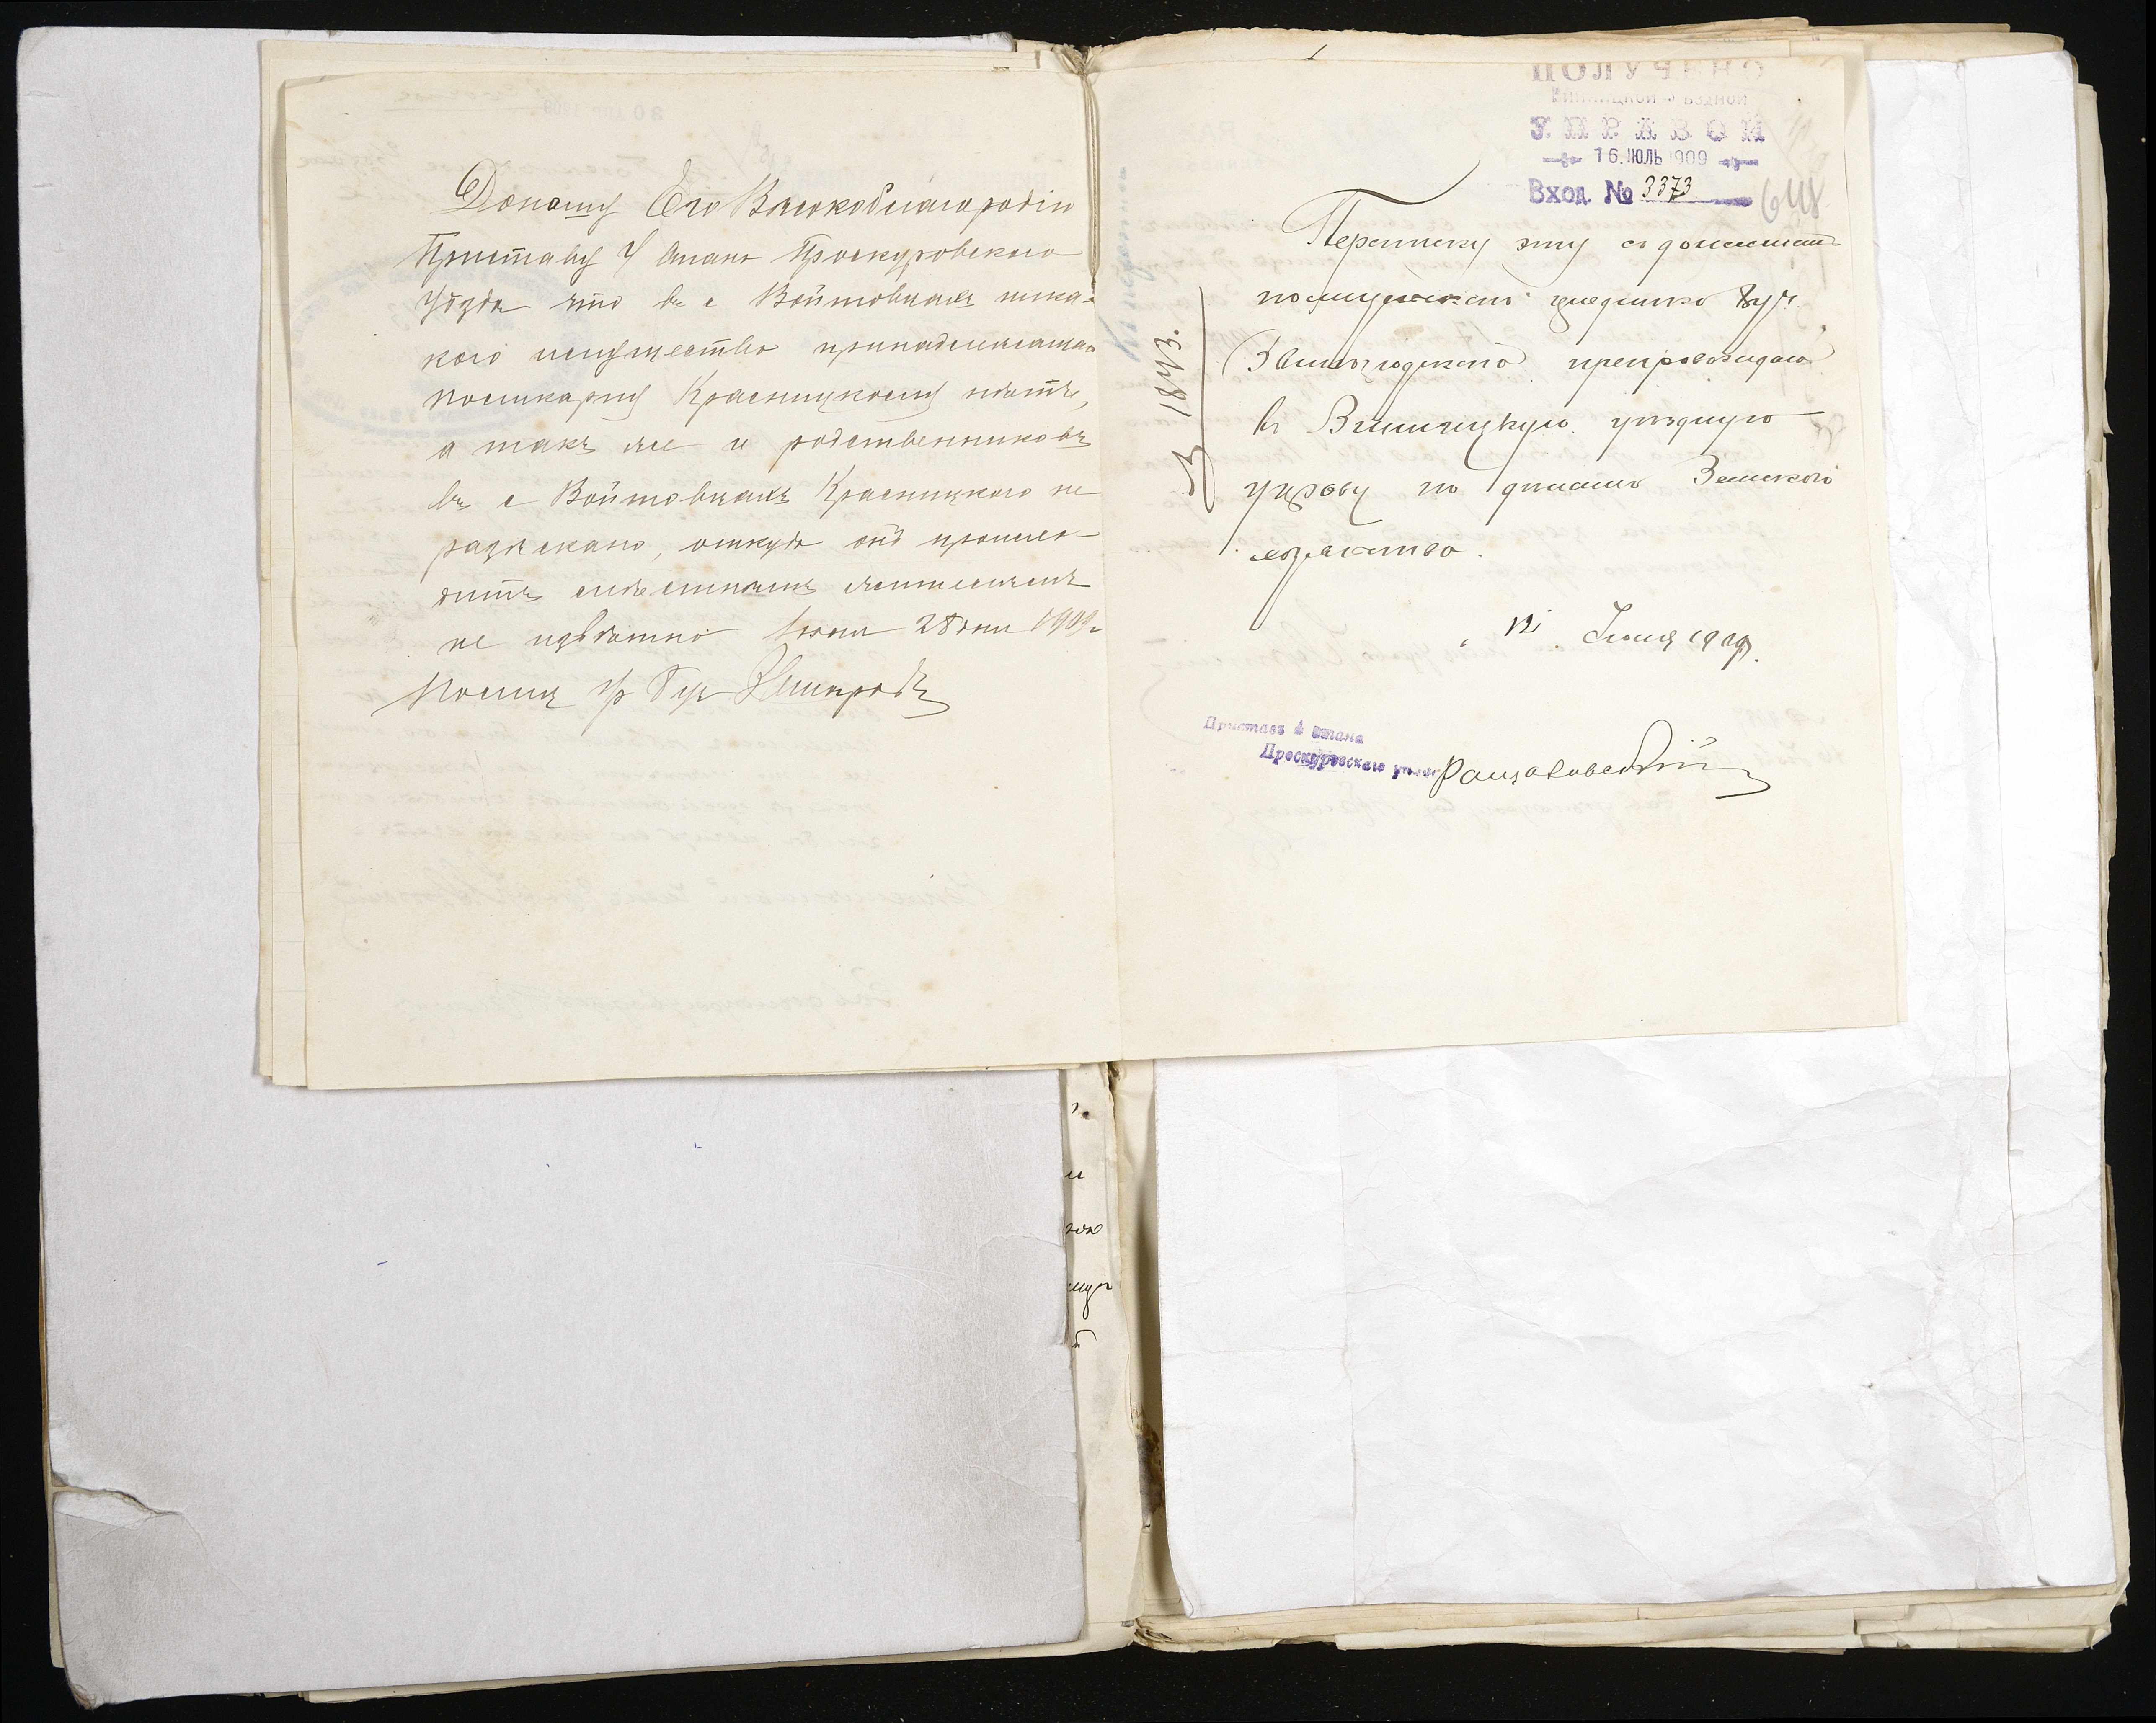 Доношу Его Высокоблагородію
Приставу 4 Стана Проскуровского
Уѣзда что въ с Войтовцахъ ника-
кого имущества принадлежаща-
Поликарпу Красницкому нѣтъ,
а такъ же и родственниковъ
въ с Войтовцахъ Красницкого не
разыскано, откуда онъ происхо-
дитъ мѣстнымъ жителямъ
не извѣстно Іюня 28 дня 1909 г
Полиц ур
ПОЛУЧЕНО
Винницкой уѣздной
УПРАВОЙ
16.ИЮЛЬ 1909
Вход. № 3373
648
№ 1843.
Переписку эту съ донесеніемъ
полицейскаго урядника 8 уч.
препровождаю
въ Винницкую уѣздную
управу по дѣламъ Земскаго
хозяйства.
12 Іюля 1909 г.
Приставъ 4 стана
Проскуровскаго уѣзда